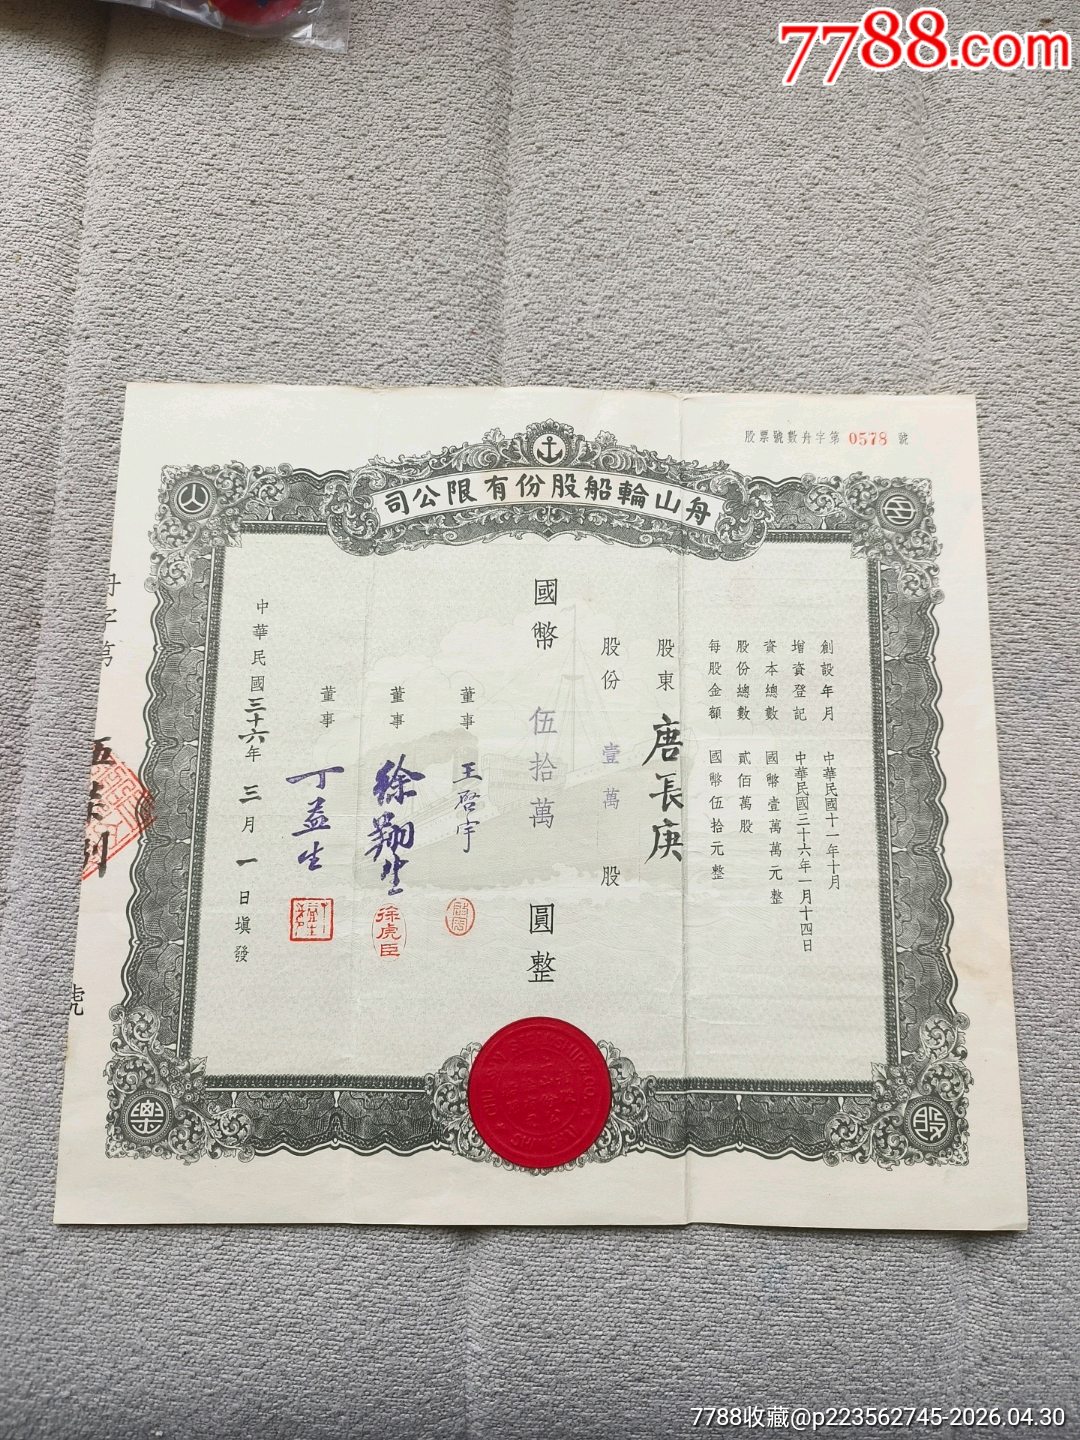 7788.com
股票號數舟字第 0578 號
舟山輪船股份有限公司
創設年月 中華民國十一年十月
增資登記 中華民國三十六年一月十四日
資本總數 國幣壹萬萬元整
股份總數 貳佰萬股
每股金額 國幣伍拾元整
股東 唐長庚
股份 壹萬 股
國幣 伍拾萬 圓整
董事 王啓宇
董事 徐翔生
徐虎臣
董事 丁益生
中華民國三十六年 三月 一日填發
舟字第
號
7788收藏@p223562745-2026.04.30